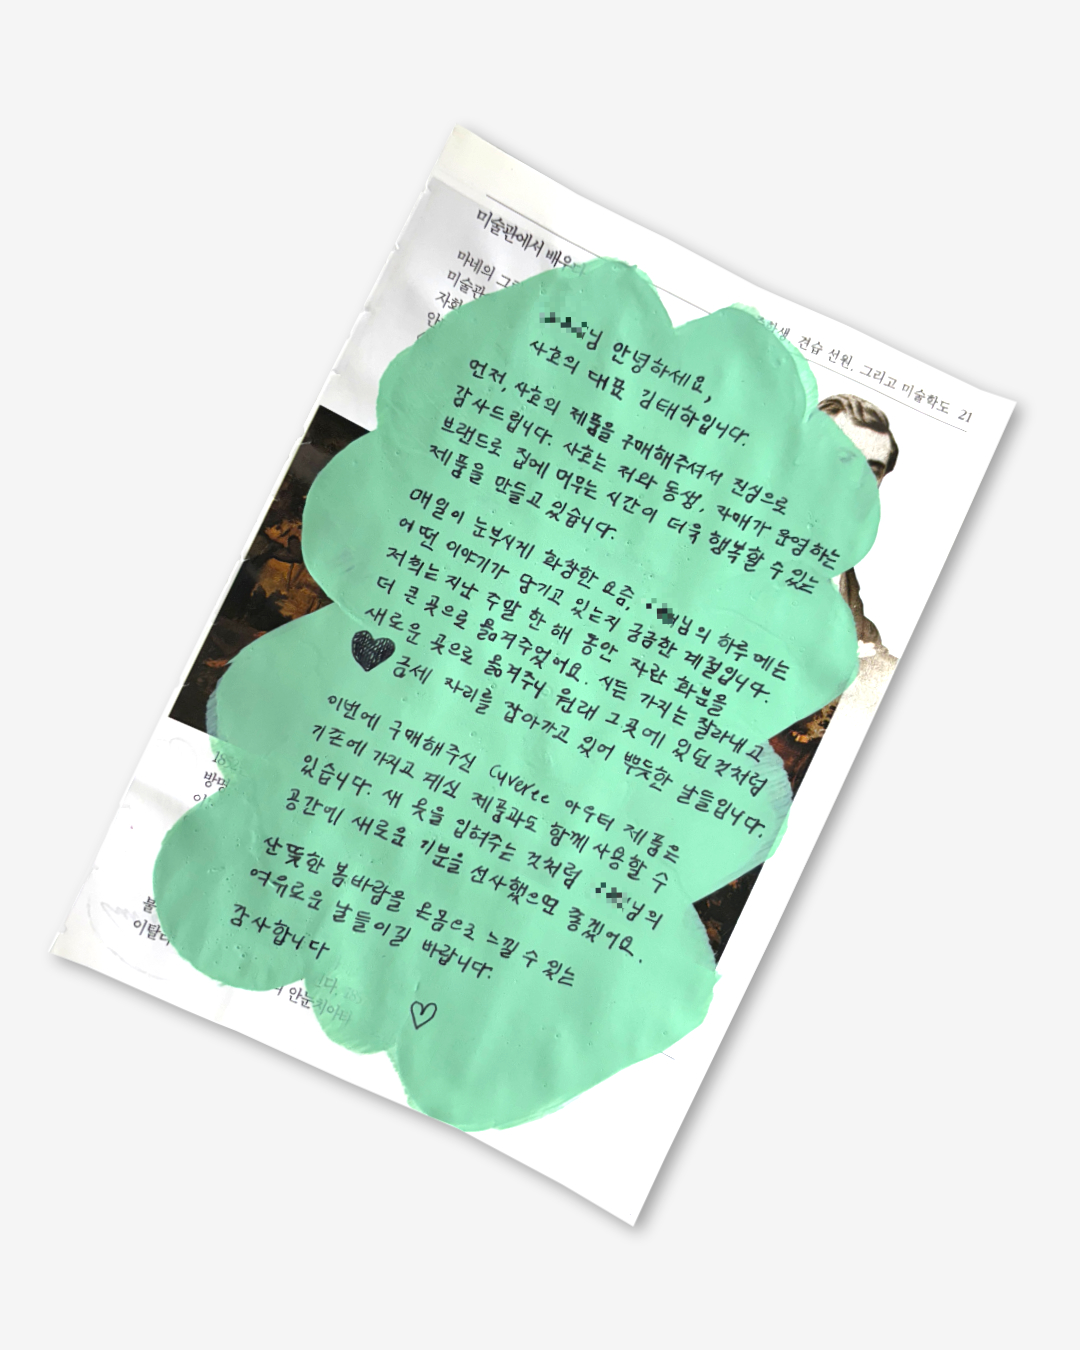 미술관에서 배우다
마네의 그
미술관
자화
안
학생, 견습 선원, 그리고 미술학도 21
님 안녕하세요,
사호의 대표 김태하입니다.
먼저, 사호의 제품을 구매해주셔서 진심으로
감사드립니다. 사호는 저와 동생, 자매가 운영하는
브랜드로 집에 머무는 시간이 더욱 행복할 수 있는
제품을 만들고 있습니다.
매일이 눈부시게 화창한 요즘, 님의 하루에는
어떤 이야기가 담기고 있는지 궁금한 계절입니다.
저희는 지난 주말 한 해 동안 자란 화분을
더 큰 곳으로 옮겨주었어요. 시든 가지는 잘라내고
새로운 곳으로 옮겨주니 원래 그곳에 있던 것처럼
금세 자리를 잡아가고 있어 뿌듯한 날들입니다.
이번에 구매해주신 Cuveree 아우터 제품은
기존에 가지고 계신 제품과도 함께 사용할 수
있습니다. 새 옷을 입혀주는 것처럼 님의
공간에 새로운 기분을 선사했으면 좋겠어요.
산뜻한 봄바람을 온몸으로 느낄 수 있는
여유로운 날들이길 바랍니다.
감사합니다
방명
이탈리